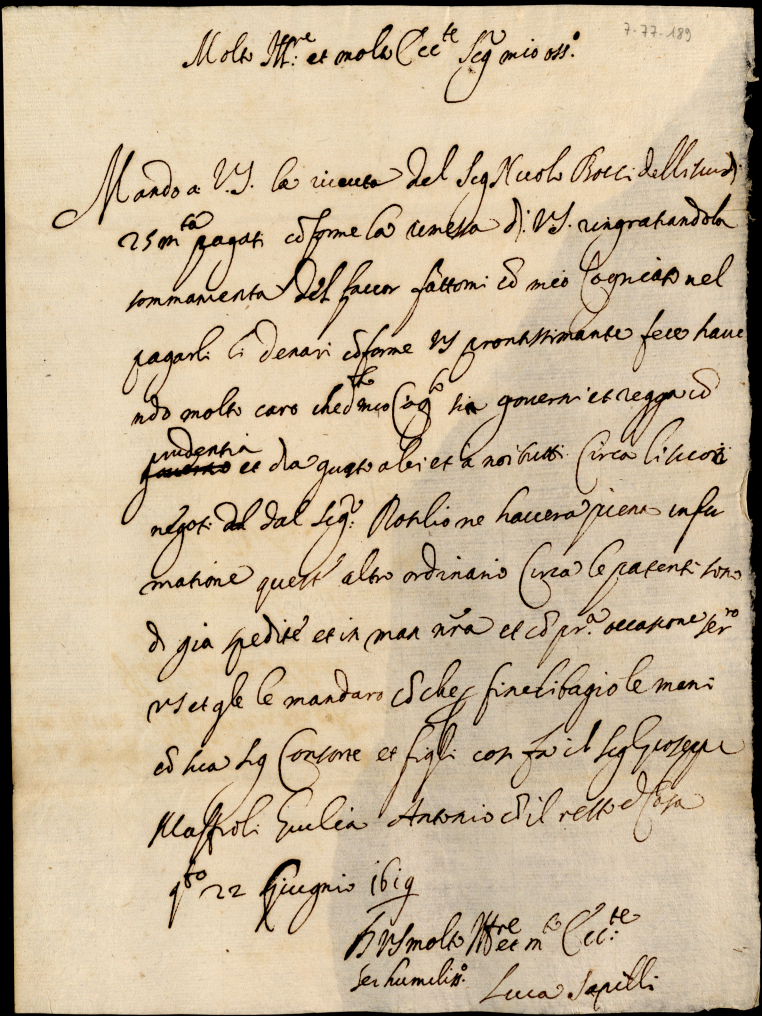 7-77-189
Molto Ill.re et molto Ecc.te Sig.r mio oss.o
Mando a V.S. la riceuta del Sig Nicolo Bocci delli scudi
25 m.ta pagati cō forme la rimessa di V.S. ringratiandola
sommamente del favor fattomi cō mio Cogniato nel
pagarli li denari cōforme VS prontissimante fece have
ndo molto caro che d.to mio Cog.to si governi et regga cō
prudentia et dia gusto a lei et a noi tutti Circa li suoi
negoti dal Sig.r Rotilio ne havera piena infor
matione quest' altro ordinario Circa le patenti sono
di gia spedite et in man nr̃a et cō pr.a occasione ser.ro
VS et gle le mandarò cō che fine li bagio le mani
cō sua Sig Consorte et figli cosi fa il Sig Gioseppe
Giulia Antonio cō il resto di casa
q.to 22 Giugnio 1619
D VS molto Ill.re et m.to Ecc.te
Ser humiliss.o
Luca Sapilli